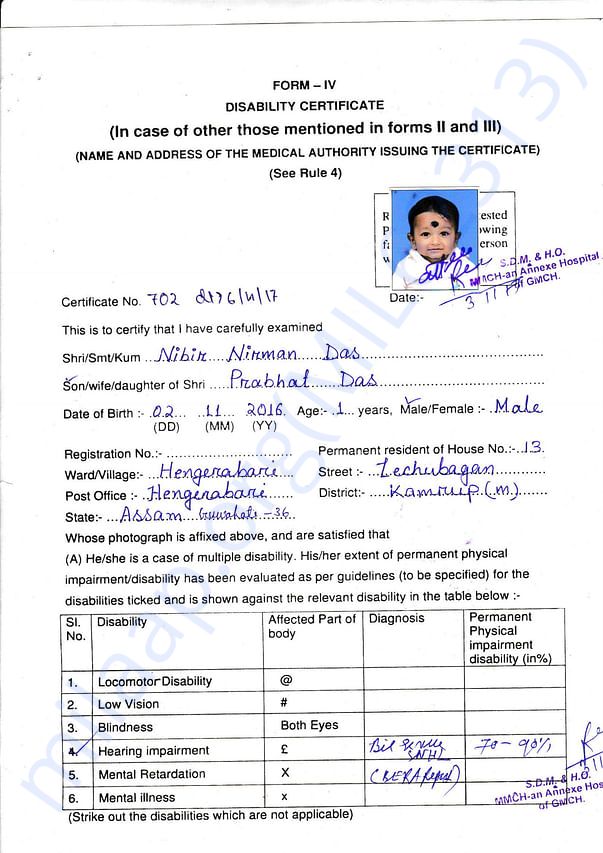 FORM – IV
DISABILITY CERTIFICATE
(In case of other those mentioned in forms II and III)
(NAME AND ADDRESS OF THE MEDICAL AUTHORITY ISSUING THE CERTIFICATE)
(See Rule 4)
R ested
P owing
f erson
w
S.D.M. & H.O.
MMCH-an Annexe Hospital
of GMCH.
Certificate No. 702
Date:-
This is to certify that I have carefully examined
Shri/Smt/Kum Nibir Nirman Das
Son/wife/daughter of Shri Prabhat Das
Date of Birth :- 02 11 2016. Age:- 1 years, Male/Female :- Male
(DD) (MM) (YY)
Registration No.:-
Permanent resident of House No.:- 13.
Ward/Village:- Hengerabari
Street :- Lechubagan
Post Office :- Hengerabari
District:- Kamrup (M.)
State:- Assam Guwahati - 36
Whose photograph is affixed above, and are satisfied that
(A) He/she is a case of multiple disability. His/her extent of permanent physical
impairment/disability has been evaluated as per guidelines (to be specified) for the
disabilities ticked and is shown against the relevant disability in the table below :-
Sl. No. Disability Affected Part of body Diagnosis Permanent Physical impairment disability (in%)
1. Locomotor Disability @
2. Low Vision #
3. Blindness Both Eyes
4. Hearing impairment £ Bil Severe SNHL 70 - 90%
5. Mental Retardation X (BERA Report)
6. Mental illness x
S.D.M. & H.O.
MMCH-an Annexe Hosp
of GMCH.
(Strike out the disabilities which are not applicable)